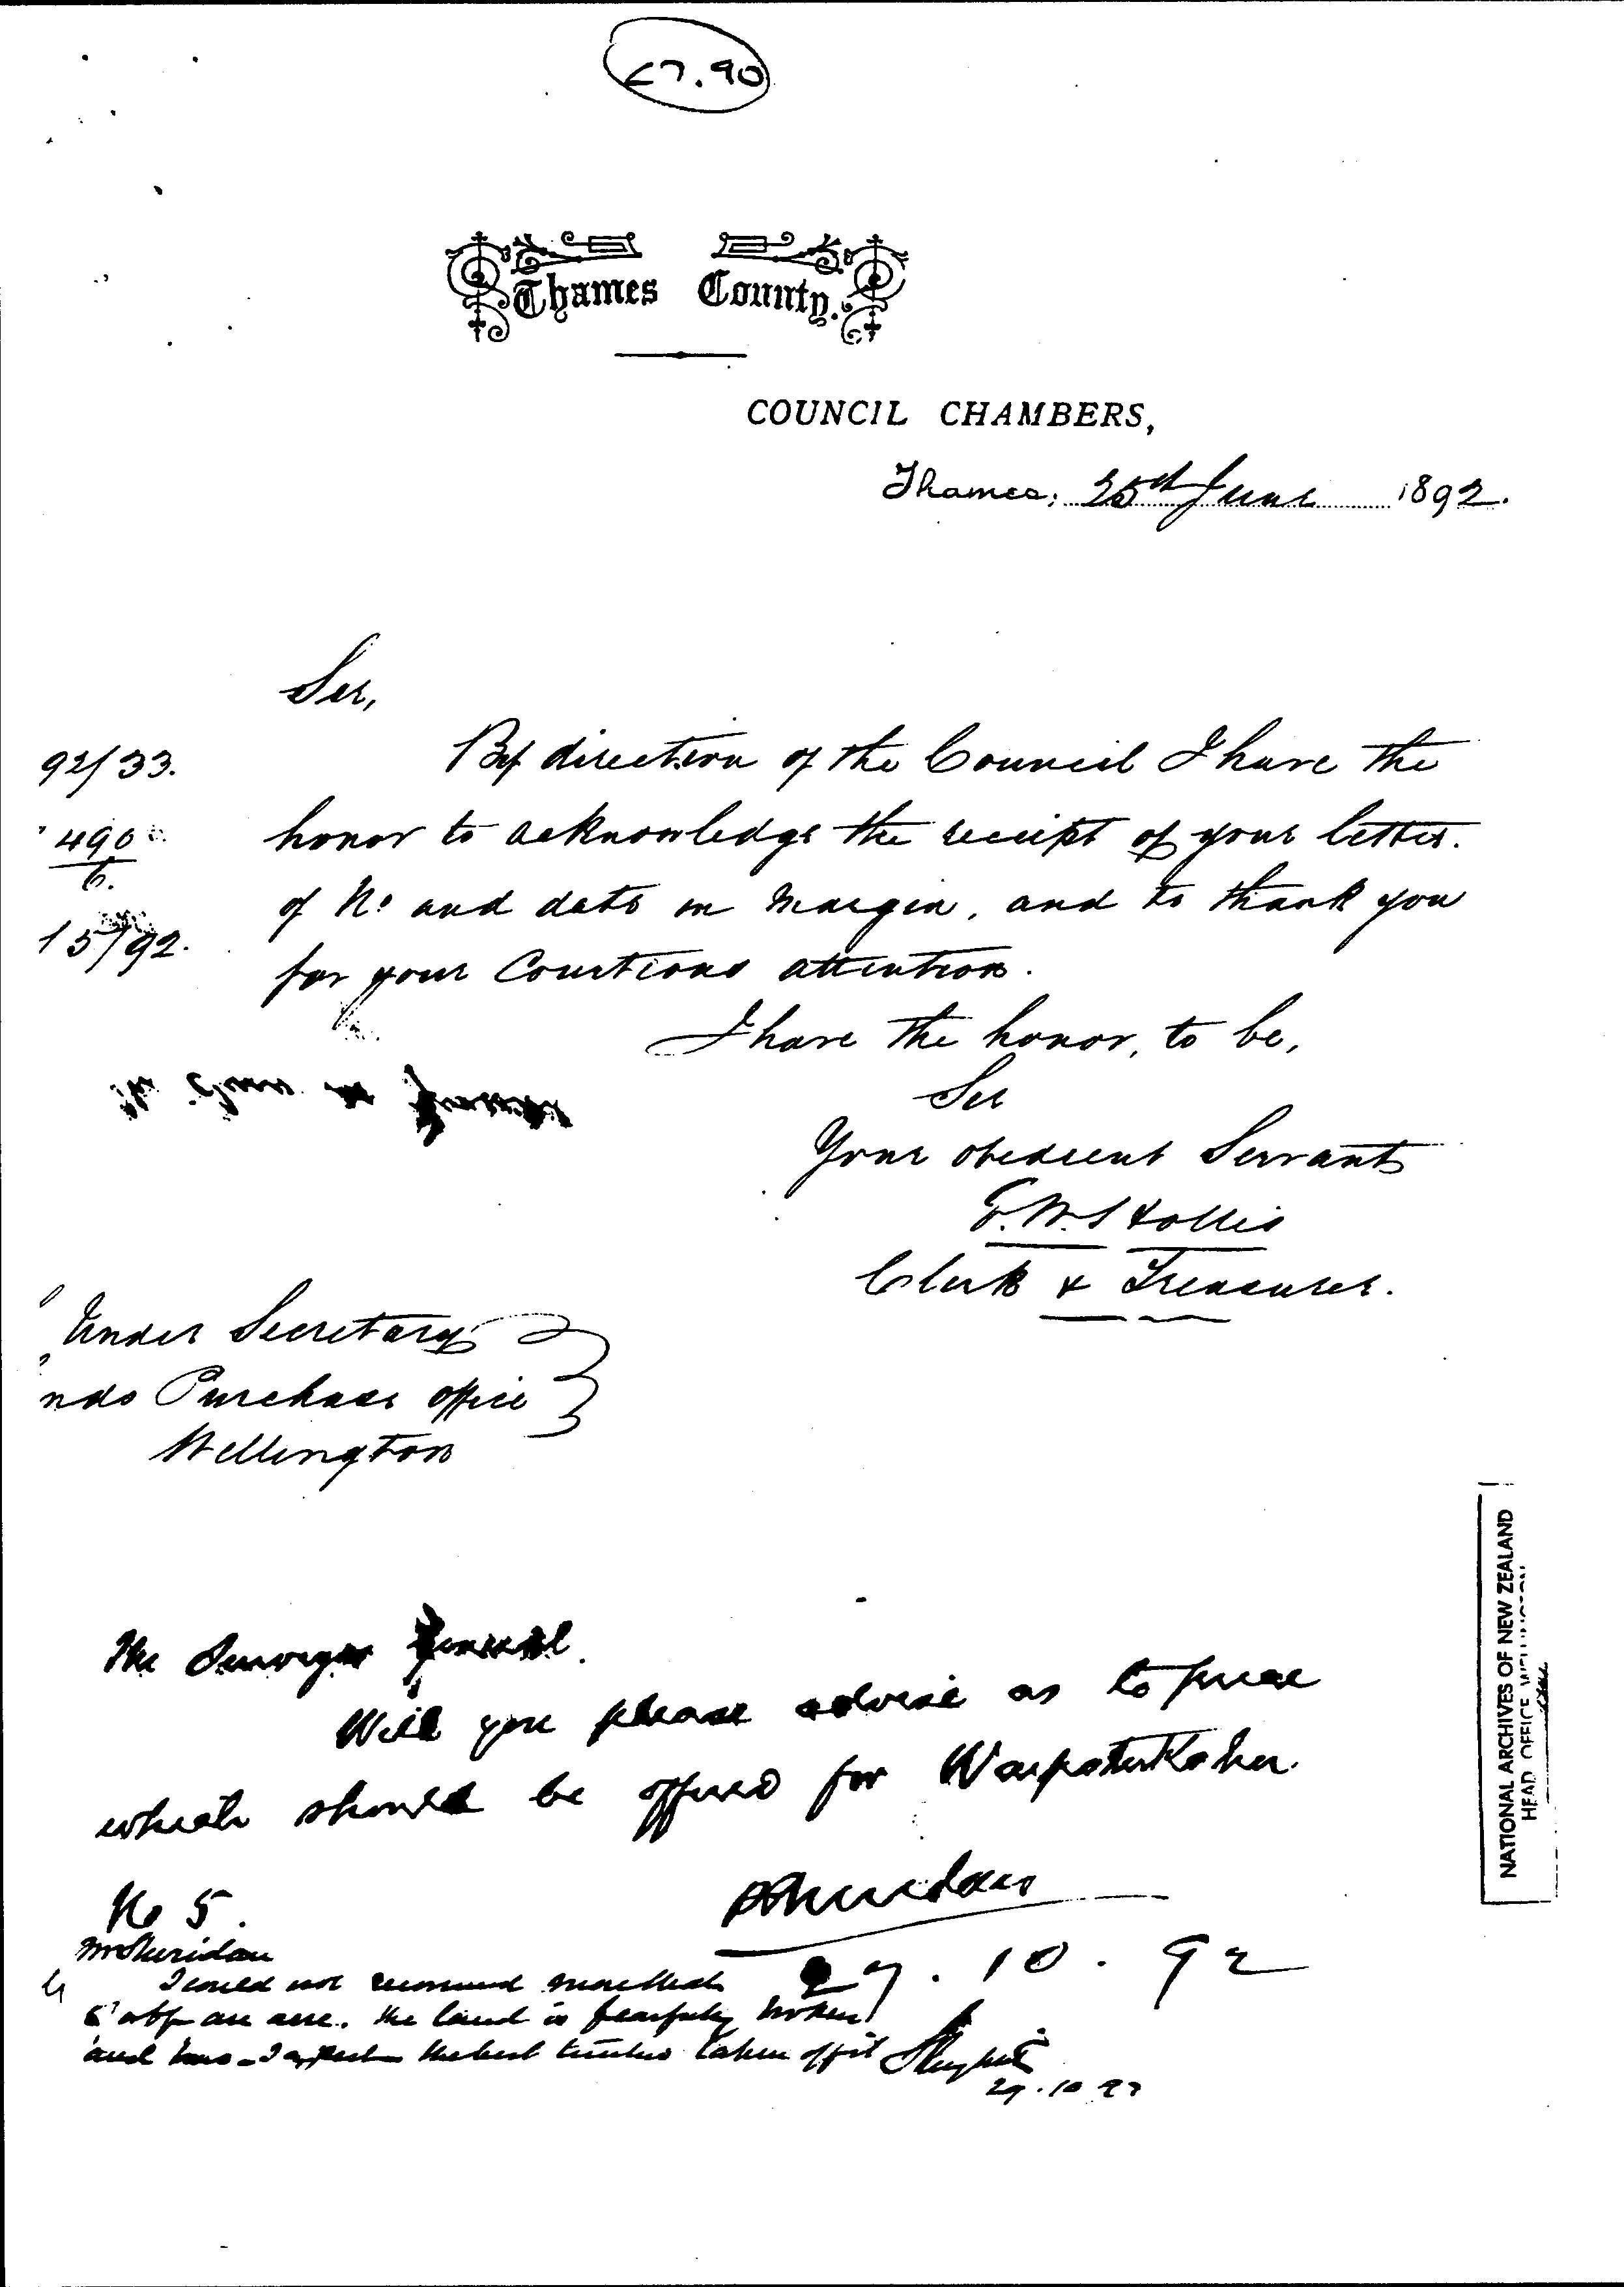 £7.90
Thames County.
COUNCIL CHAMBERS,
Thames, 25th June 1892.
Sir,
92/33.
By direction of the Council I have the
490
6.
honor to acknowledge the receipt of your letter
15/92.
of No and date in margin, and to thank you
for your Courteous attention.
I have the honor, to be,
Sir
Your obedient Servant
Hollis
Clerk & Treasurer.
Under Secretary
nds Purchase office
Wellington
The Surveyor General.
Will you please advise as to price
which should be offered for
No 5.
PSheridan
27.10.92
Mr Sheridan
I could not recommend more than
an acre. The land is fearfully broken
and I expect the best timber taken off it
29.10.92
NATIONAL ARCHIVES OF NEW ZEALAND
HEAD OFFICE WELLINGTON